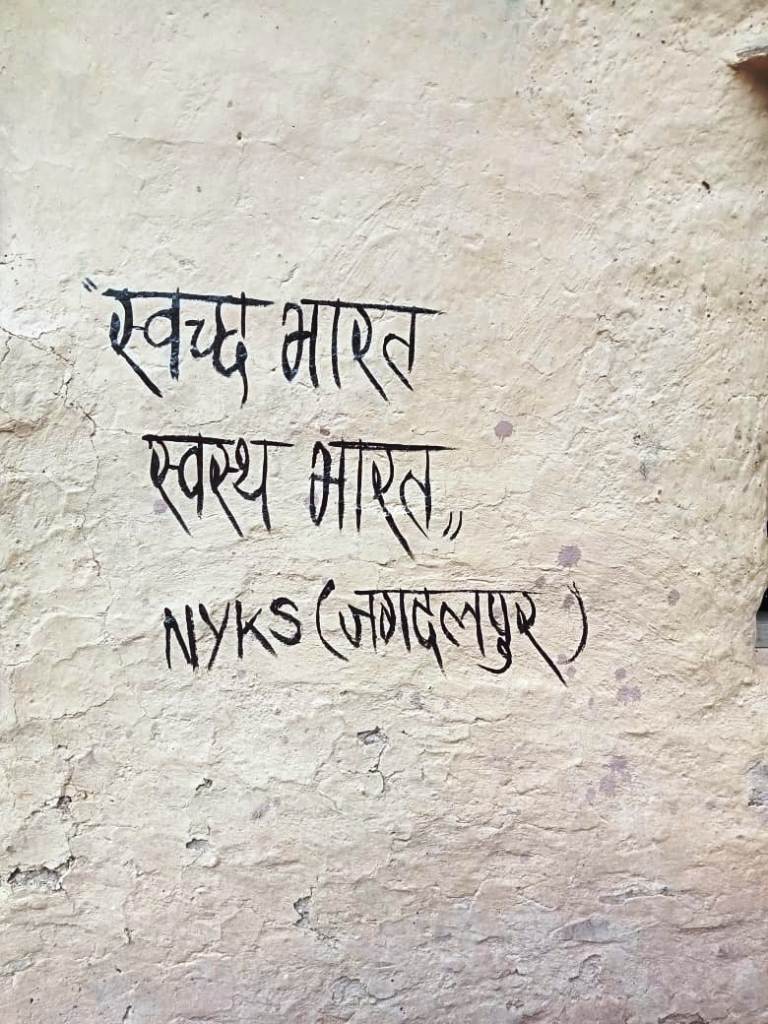 "स्वच्छ भारत
स्वस्थ भारत"
NYKS (जगदलपुर)